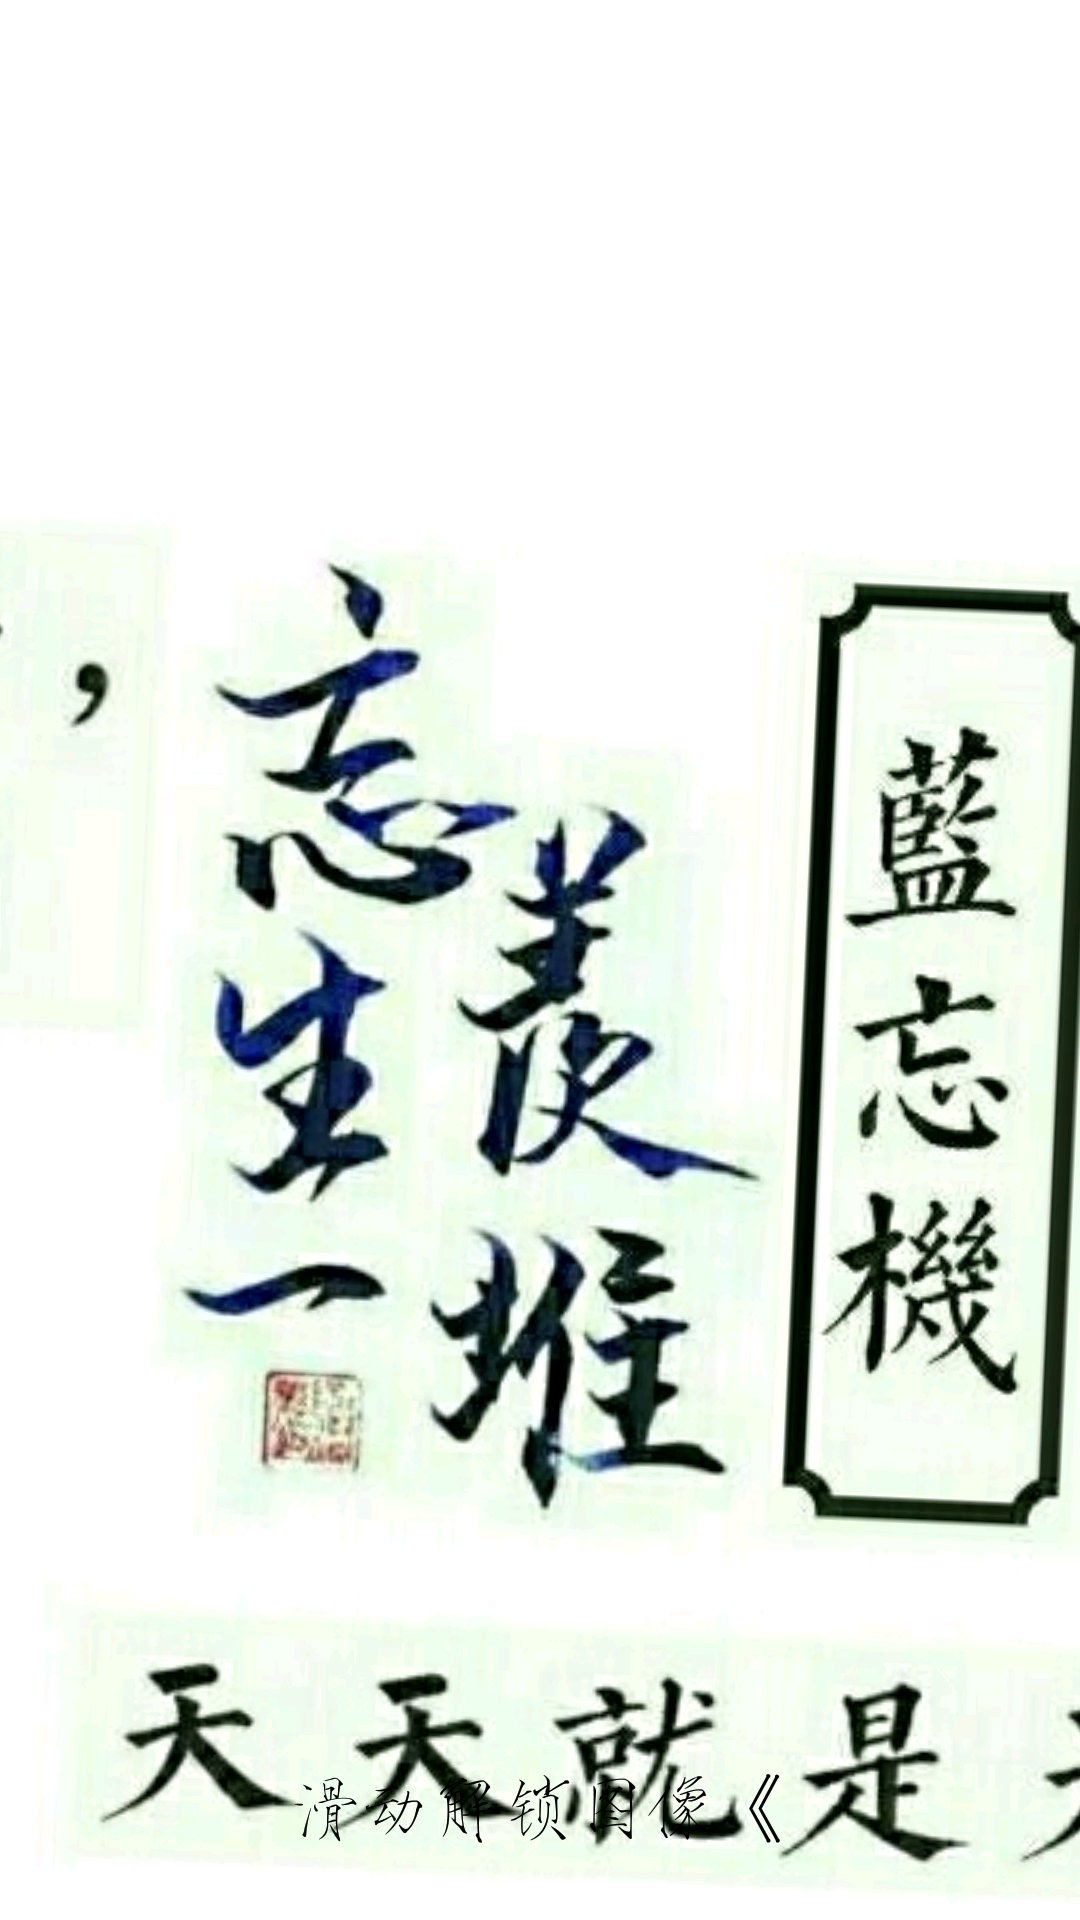 ，
忘
生
一
羨
堆
藍忘機
天天就是天
滑动解锁图像《